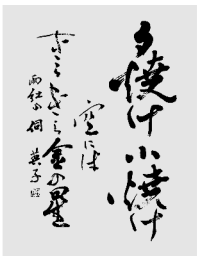 夕焼け小焼け
空には
きらきら金の星
雨紅の詞 英子